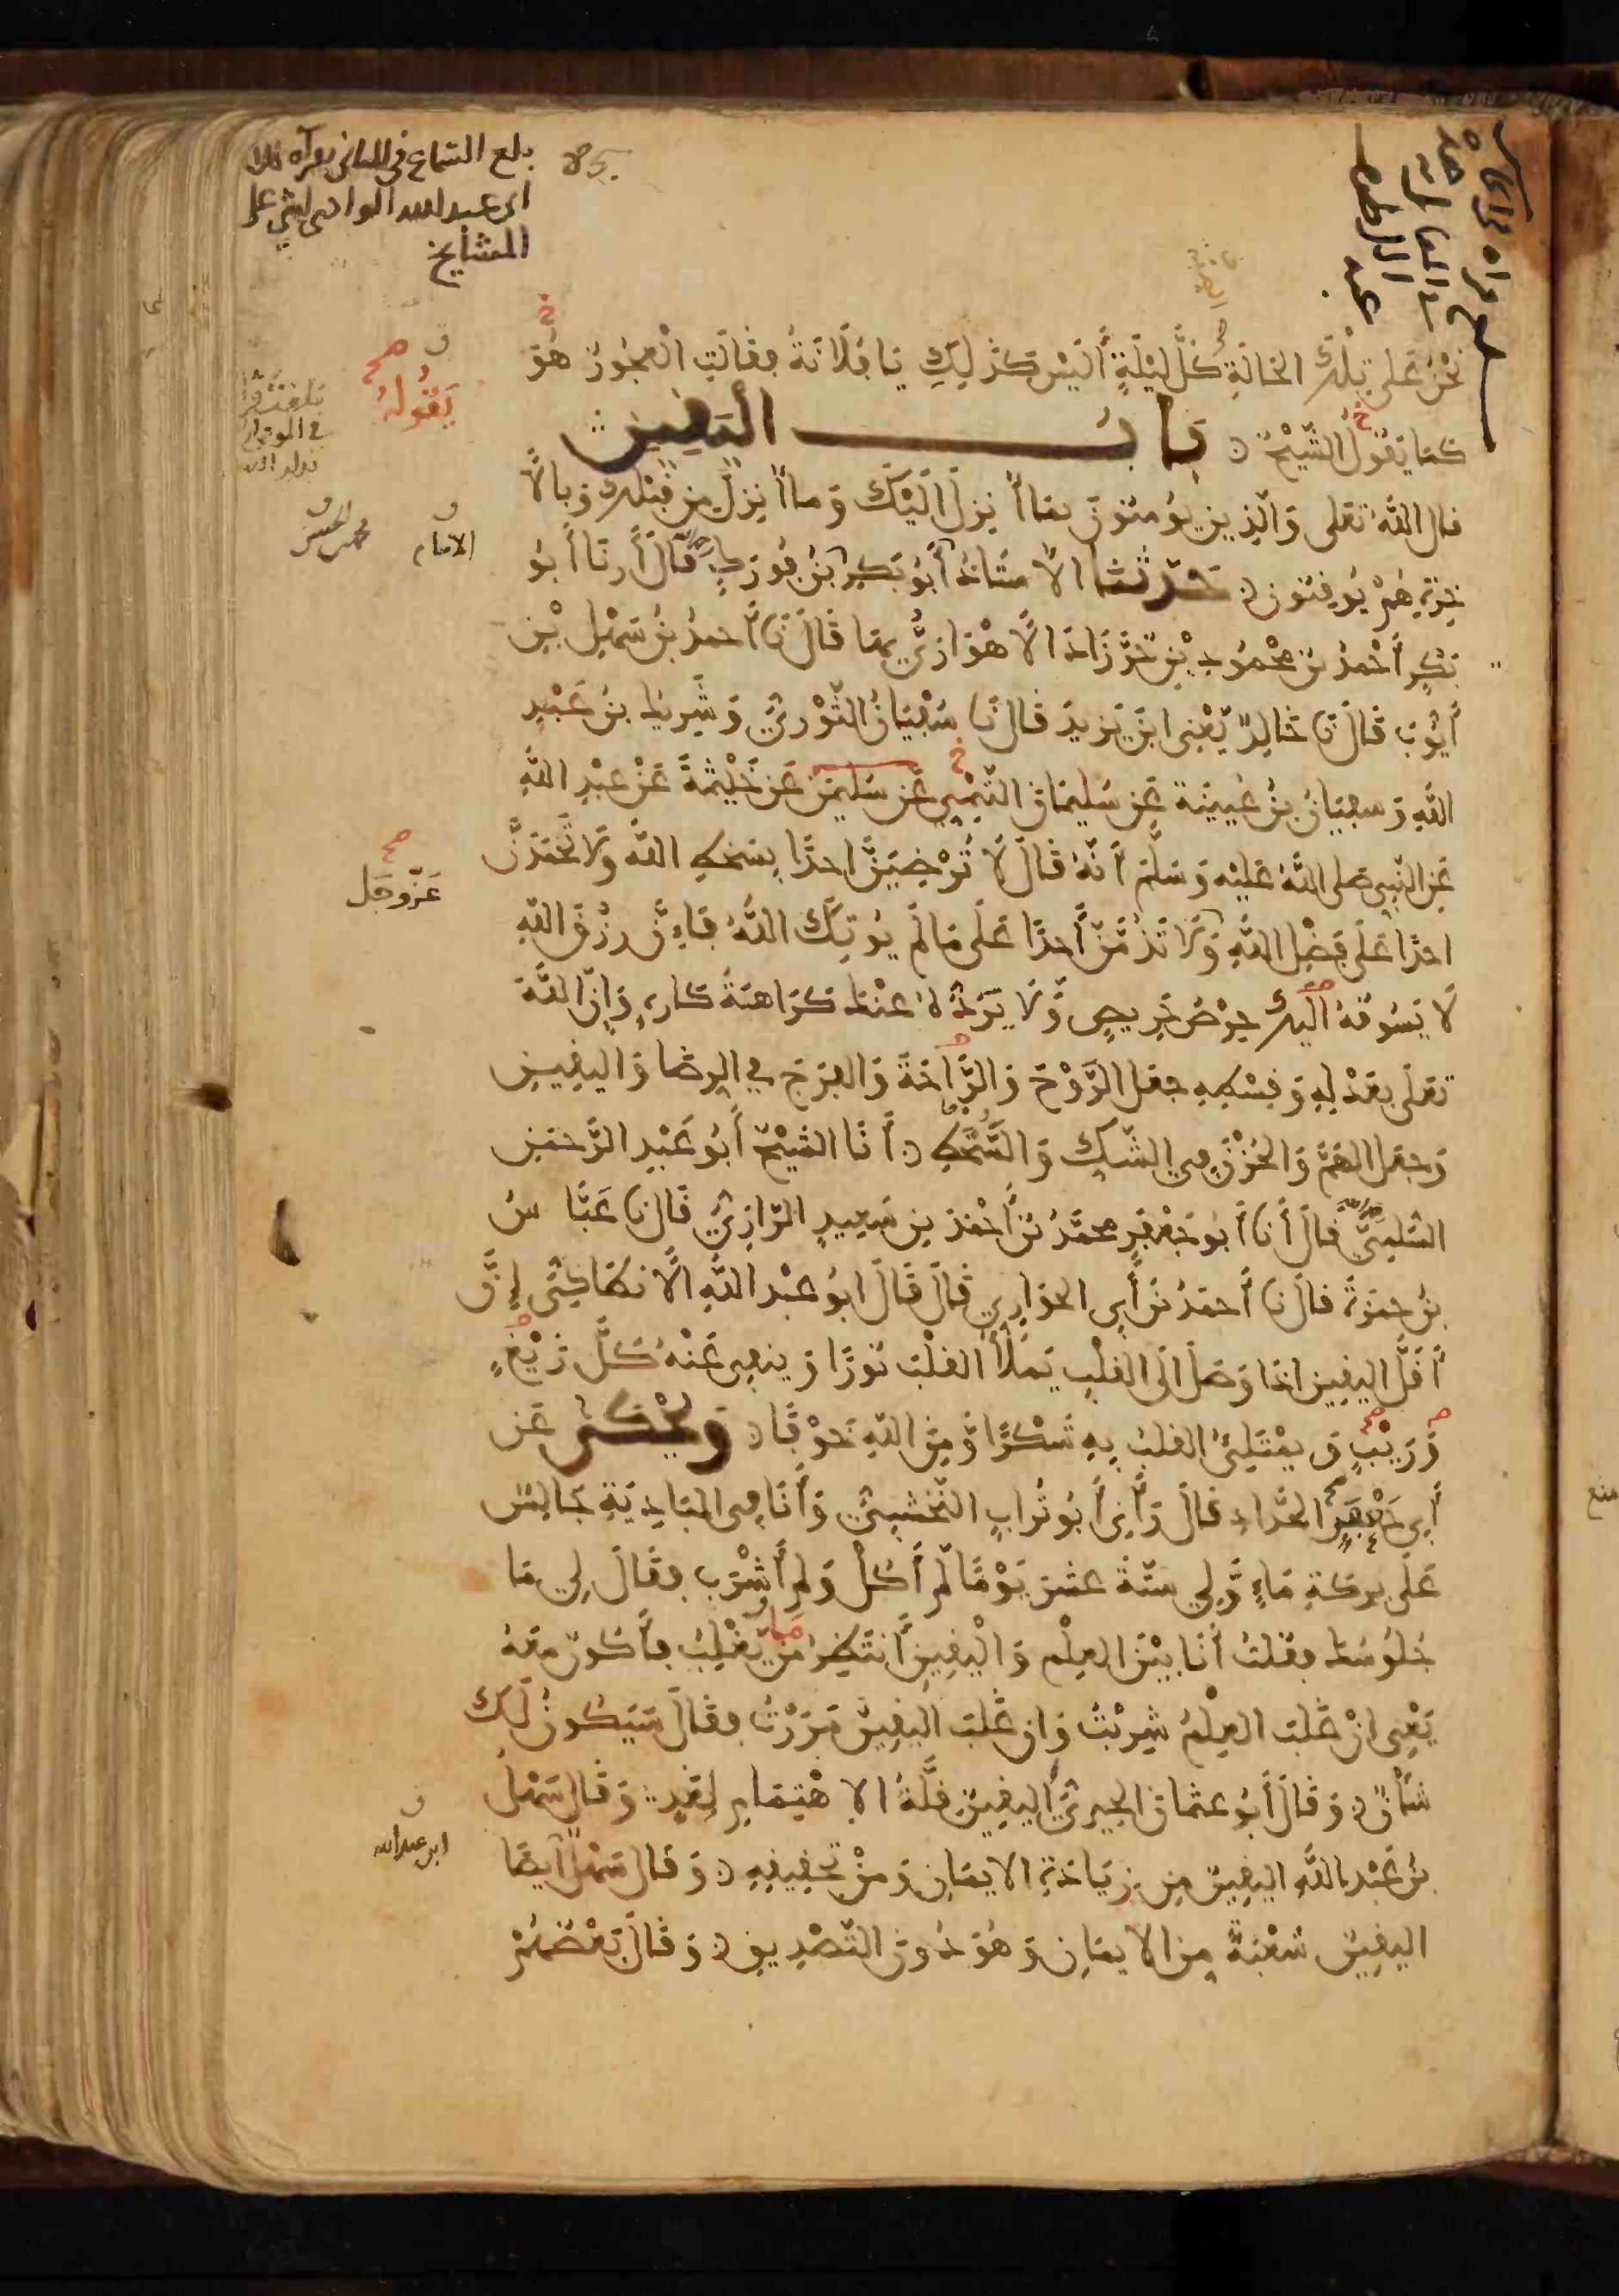 بلغ السماع في الثاني بقراءة
ابي عبد الله الوادي اشي على
المشايخ
نَحْنُ عَلى تِلْكَ الحَالَةِ كُلَّ لَيْلَةٍ أَلَيْسَ كَذلِكِ يَا فُلَانَةُ فقَالَتِ الْعَجُوزُ هُوَ
يَقُولُهُ صح
كمَا يَقُولُ الشَّيْخُ بَابُ الْيَقِينِ
قال اللهُ تعَلى وَالّذِينَ يُؤمِنُونَ بِمَا أُنزِلَ إلَيْكَ وَمَا أُنزِلَ مِن قَبْلِكَ وَبِالْأ
الامام
محمد بن الحسن
خِرَةِ هُمْ يُوقِنُونَ حَدَّثَنَا الْأُسْتَاذُ أَبُو بَكْرِ بْنُ فُورَكٍ قَالَ أَرنَا أَبُو
بَكْرٍ أَحْمَدُ بنُ مَحْمُودِ بْنِ خُرَّزَاذَ الْأَهْوَازِيُّ بِهَا قَالَ نَا أَحمدُ بْنُ سَهْلِ بْنِ
أَيُّوبَ قَالَ نَا خَالِدٌ يَعْنِى ابنَ يَزِيدَ قَالَ نَا سُفْيَانُ الثَّوْرِيُّ وَشَرِيكُ بنُ عَبْدِ
اللهِ وَسُفيَانُ بنُ عُيَيْنَةَ عَن سُلَيمَانَ التَّيْمِيِّ عَن سُلَيمَنَ عَن خَيْثَمَةَ عَنْ عَبْدِ اللهِ
عَنِ النَّبِى صَلى اللهُ عَلَيْهِ وَسَلَّمَ أَنَّهُ قَالَ لَا تُرْضِيَنَّ احدًا بِسَخَطِ اللهِ وَلَا تَحْمَدَنَّ
عَزّ وجَل صح
احدًا عَلَى فَضْلِ اللهِ وَلَا تَذُمَّنَّ أَحدًا عَلَى مَا لَم يُوتِكَ اللهُ فَإِنَّ رِزْقَ اللهِ
لَا يَسُوقُهُ اليكَ حِرْصُ حَرِيصٍ وَلَا يَرُدُّهُ عَنْكَ كَرَاهَةُ كَارِهٍ وَإِنَّ اللهَ
تعَلَى بِعَدْلِهِ وَقِسْطِهِ جعَلَ الرَّوْحَ وَالرَّاحَةَ وَالفَرَجَ فِي الرِضَا وَاليَقِينِ
وَجعَلَ الهَمَّ وَالحُزْنَ فِي الشَّكِ وَالسُّخْطِ أَنَا الشَّيْخُ أَبُو عَبْدِ الرَّحمَنِ
السُّلَمِيُّ قَالَ أَنَا أَبُو جَعْفَرٍ محمَّدُ بْنُ أَحْمَدَ بنِ سَعِيدٍ الرَّازِيُّ قَالَ نَا عَبَّاسُ
بْنُ حَمزَةَ قَالَ نَا أَحمَدُ بْنُ أَبِى الحوَارِي قَالَ قَالَ ابُو عَبْدِ اللهِ الْأَنطَاكِيُّ إِنَّ
أَقَلَّ اليَقِينِ اذَا وَصَلَ الَى القَلْبِ يَملَأُ القَلْبَ نُورًا وَينفِى عَنْهُ كُلَّ رَيْبٍ
وَرَيْبٍ وَيمْتَلِئُ القَلبُ بِهِ شُكْرًا وَّمِنَ اللهِ خَوْفًا وَيُحْكَى عَن
أَبِى جَعْفَرٍ الحَدَّادِ قَالَ رَآنِى أَبُو تُرَابٍ النَّخْشَبِيُّ وَأَنَا فِى البَادِيَةِ جَالِسٌ
عَلَى بِركَةِ مَاءٍ وَّلِي سِتَّةَ عَشَرَ يَوْمًا لَّم أَكُلْ وَلَم أَشْرَب فقَالَ لِي مَا
جُلُوسُكَ فقُلتُ أَنَا بَيْنَ العِلْمِ وَالْيَقِينِ أَنتَظِرُ مَن يَّغْلِبُ فأَكُونُ مَعَهُ
يَعْنِى انْ غَلَبَ العِلْمُ شَرِبْتُ وَانْ غَلَبَ اليَقِينُ مَرَرْتُ فقَالَ سَيَكُونُ لَكَ
شَأْنٌ وَقَالَ أَبُو عُثمَانَ الحِيرِيُّ اليَقِينُ قِلَّةُ الاِهْتِمَامِ لِغَدٍ وَقَالَ سَهْلُ
ابن عبد الله
بْنُ عَبْدِ اللهِ اليَقِينُ مِن زِيَادَةِ الايمَانِ وَمِنْ تَحْقِيقِهِ وَقَالَ سَهْلٌ أَيضًا
اليَقِينُ شُعْبَةٌ مِنَ الايمَانِ وَهُوَ دُونَ التَّصْدِيقِ وَقَالَ بَعْضُهُمْ